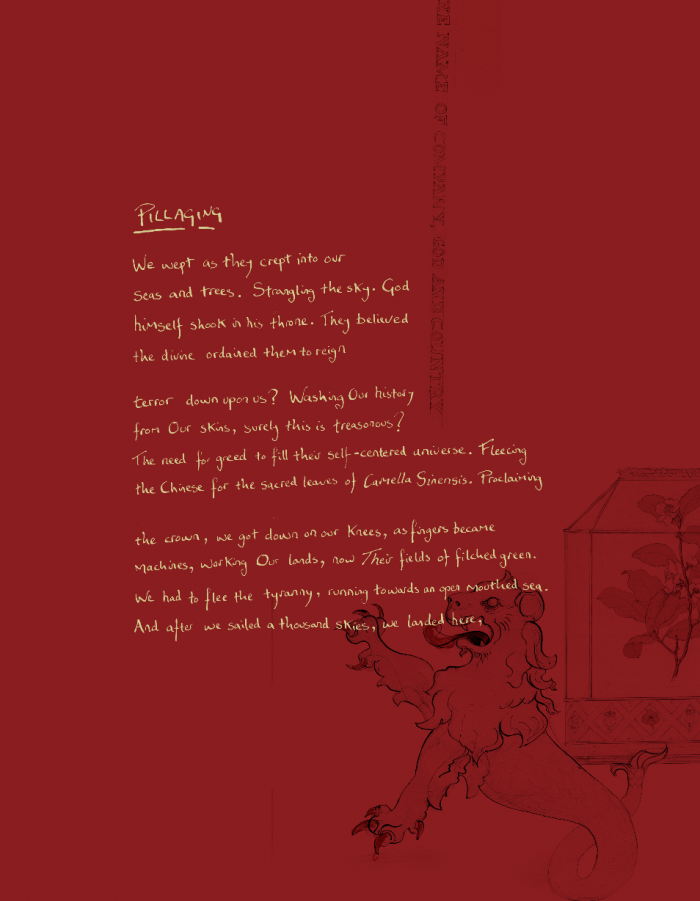 PILLAGING
We wept as they crept into our
seas and trees. Strangling the sky. God
himself shook in his throne. They believed
the divine ordained them to reign
terror down upon us? Washing Our history
from Our skins, surely this is treasonous?
The need for greed to fill their self-centered universe. Fleecing
the Chinese for the sacred leaves of Camellia Sinensis. Proclaiming
the crown, we got down on our knees, as fingers became
machines, working Our lands, now Their fields of filched green.
We had to flee the tyranny, running towards an open mouthed sea.
And after we sailed a thousand skies, we landed here,
NAME OF COMPANY, GOD AND COUNTRY